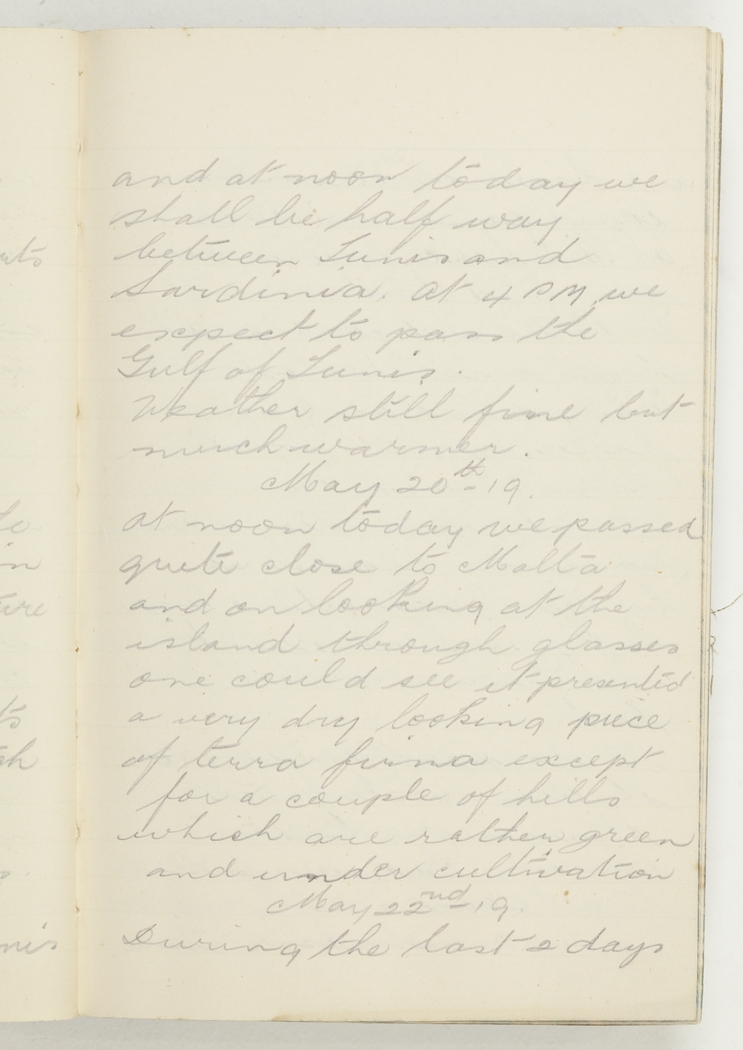 and at noon today we
shall be half way
between Tunis and
Sardinia. at 4 PM. we
expect to pass the
Gulf of Tunis.
Weather still fine but
much warmer.
May 20th-19.
at noon today we passed
quite close to Malta
and on looking at the
island through glasses
one could see it presented
a very dry looking piece
of terra firma except
for a couple of hills
which are rather green
and under cultivation
May 22nd-19.
During the last 2 days